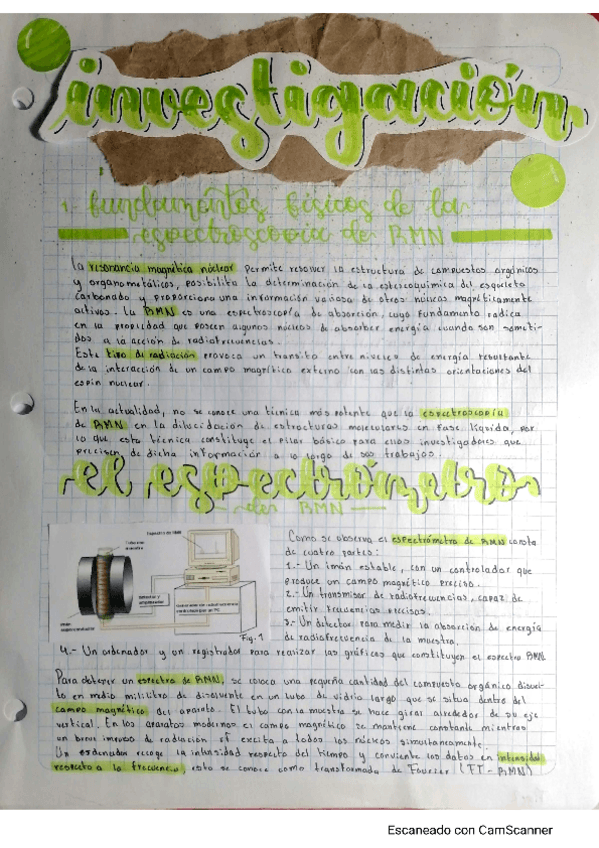 investigación
1.- fundamentos físicos de la
espectroscopía de RMN
La resonancia magnética nuclear permite resolver la estructura de compuestos orgánicos
y organometálicos, posibilita la determinación de la estereoquímica del esqueleto
carbonado y proporciona una información valiosa de otros núcleos magnéticamente
activos. La RMN es una espectroscopía de absorción, cuyo fundamento radica
en la propiedad que poseen algunos núcleos de absorber energía cuando son someti-
dos a la acción de radiofrecuencias.
Este tipo de radiación provoca un transito entre niveles de energía resultante
de la interacción de un campo magnético externo con las distintas orientaciones del
espin nuclear.
En la actualidad, no se conoce una técnica más potente que la espectroscopía
de RMN en la dilucidación de estructuras moleculares en fase líquida, por
lo que esta técnica constituye el pilar básico para ellos investigadores que
precisen de dicha información a lo largo de sus trabajos.
el espectrómetro
de RMN
Como se observa el espectrómetro de RMN consta
de cuatro partes:
1.- Un imán estable, con un controlador que
produce un campo magnético preciso.
2.- Un transmisor de radiofrecuencias, capaz de
emitir frecuencias precisas.
3.- Un detector para medir la absorción de energía
de radiofrecuencia de la muestra.
Fig. 1
4.- Un ordenador y un registrador para realizar las gráficas que constituyen el espectro RMN.
Para obtener un espectro de RMN, se coloca una pequeña cantidad del compuesto orgánico disuel-
to en medio mililitro de disolvente en un tubo de vidrio largo que se situa dentro del
campo magnético del aparato. El tubo con la muestra se hace girar alrededor de su eje
vertical. En los aparatos modernos el campo magnético se mantiene constante mientras
un breve impulso de radiación rf excita a todos los núcleos simultaneamente.
Un ordenador recoge la intensidad respecto del tiempo y convierte los datos en intensidad
respecto a la frecuencia, esto se conoce como transformada de Fourier (FT-RMN)
Escaneado con CamScanner